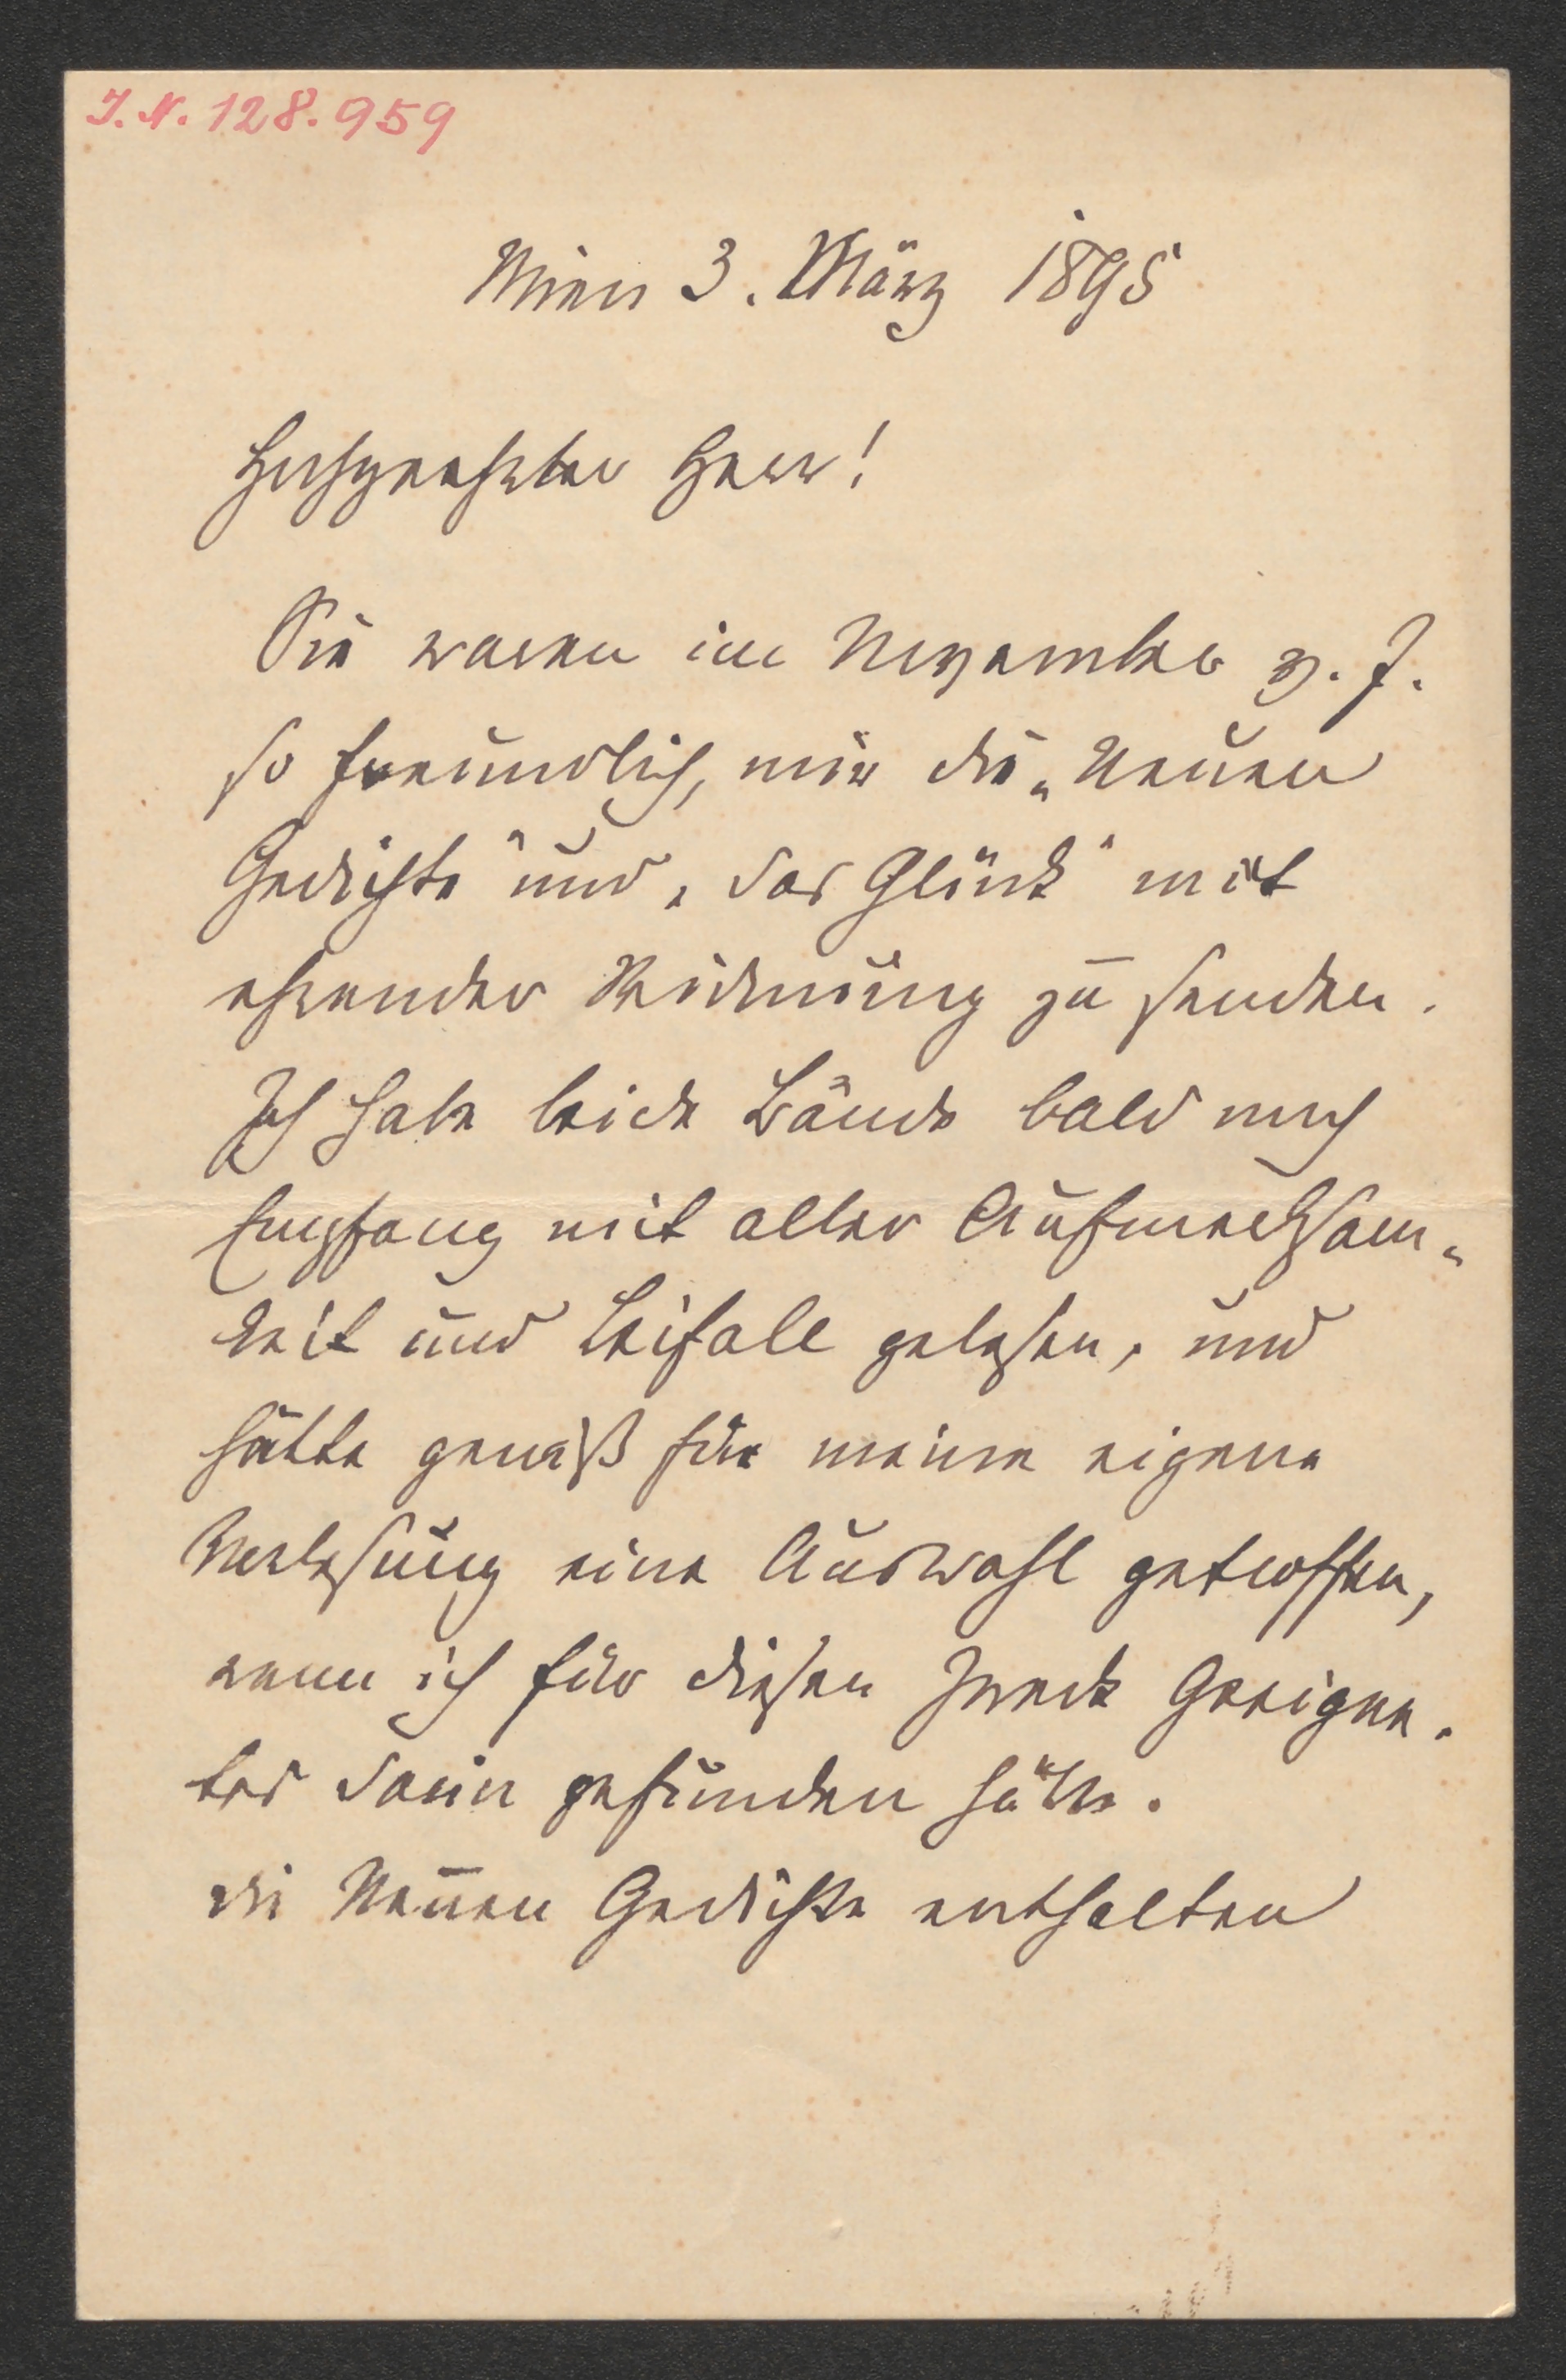 I. N. 128.959
Wien 3. März 1895
Hochgeehrter Herr!
Sie waren im November v. J.
so freundlich, mir die „Neuen
Gedichte“ und „das Glück“ mit
ehrender Widmung zu senden.
Ich habe beide Bände bald nach
Empfang mit aller Aufmerksam-
keit und Beifall gelesen, und
hätte gewiß für meine eigene
Vorlesung eine Auswahl getroffen,
wenn ich für diesen Zweck Geeigne-
tes darin gefunden hätte.
Die Neuen Gedichte enthalten